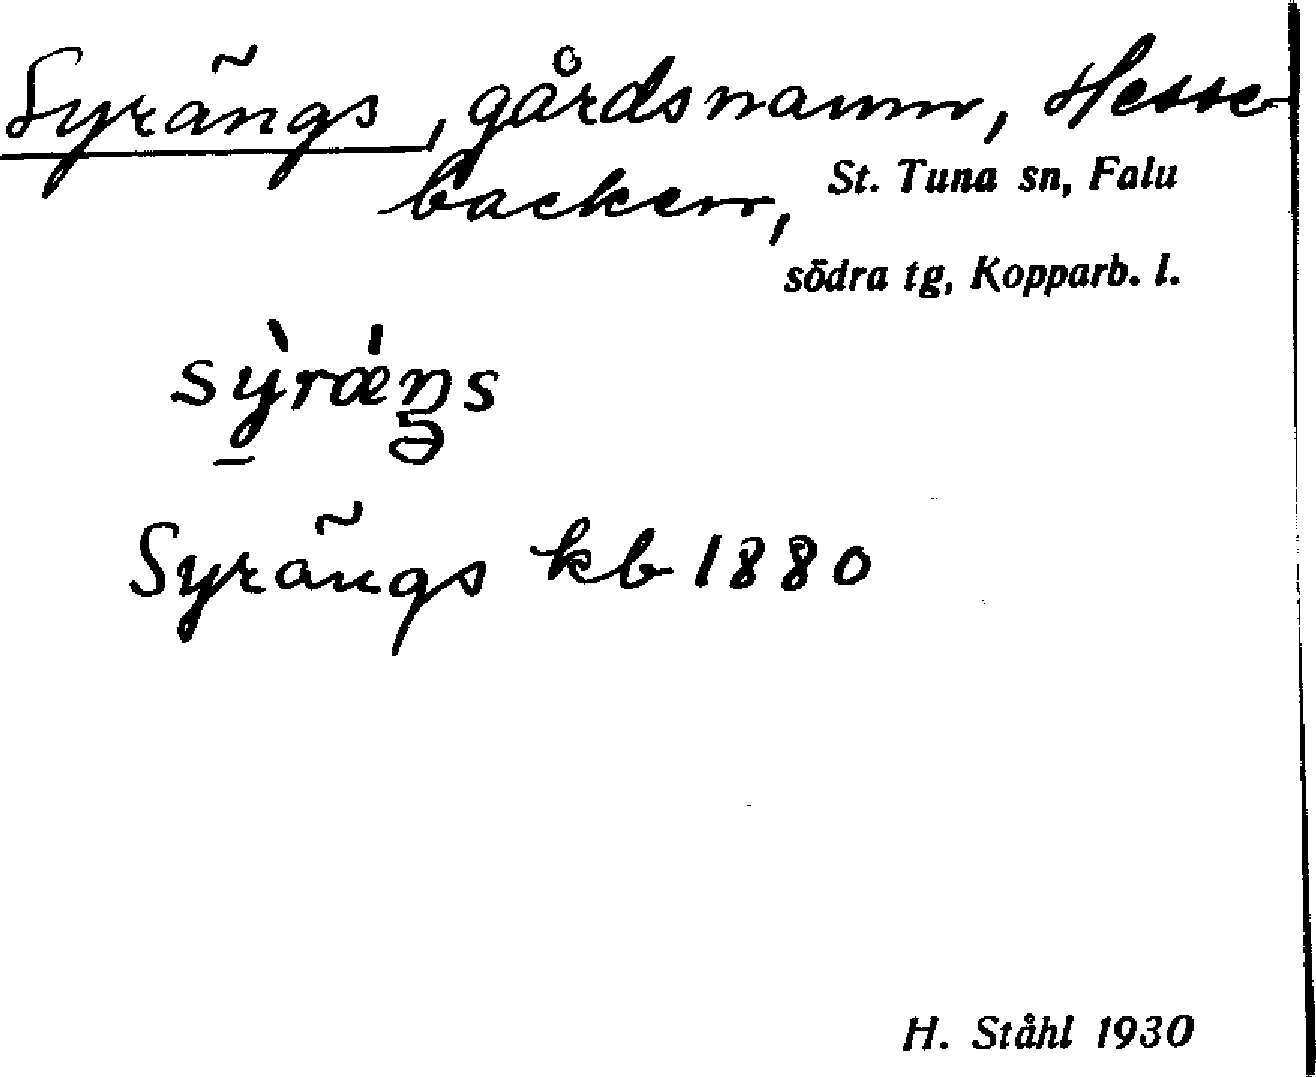 Syrängs, gårdsnamn, Hesse-
backen, St. Tuna sn, Falu
södra tg, Kopparb. l.
Syrängs kb 1880
H. Ståhl 1930